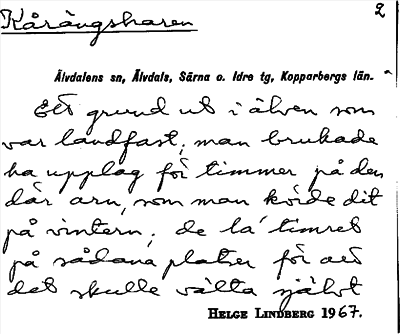 Kårängsharen 2
Älvdalens sn, Älvdals, Särna o. Idre tg, Kopparbergs län.
Ett grund ut i älven som
var landfast; man brukade
ha upplag för timmer på den
där arn, som man körde dit
på vintern; de la' timret
på sådana platser för att
det skulle välta självt
HELGE LINDBERG 1967.